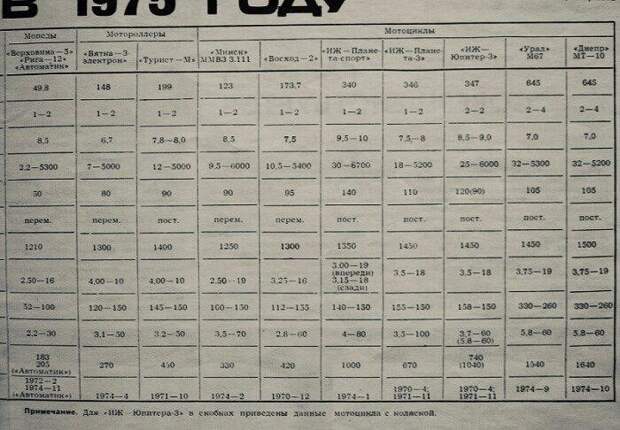 В 1975 ГОДУ
Мопеды Мотороллеры Мотоциклы
«Верховина—5» «Рига—12» «Автоматик» «Вятка—3-электрон» «Турист—М» «Минск» ММВЗ 3.111 «Восход—2» «ИЖ—Планета-спорт» «ИЖ—Планета-3» «ИЖ—Юпитер-3» «Урал» М67 «Днепр» МТ—10
49,8 148 199 123 173,7 340 346 347 645 645
1—2 1—2 1—2 1—2 1—2 1—2 1—2 2—2 2—4 2—4
8,5 6,7 7,8—8,0 8,5 7,5 9,5—10 7,5—8 8,5—9,0 7,0 7,0
2,2—5300 7—5000 12—5000 9,5—6000 10,5—5400 30—6700 18—5200 25—6000 32—5300 32—5200
50 80 90 90 95 140 110 120(90) 105 105
перем. перем. пост. перем. перем. пост. пост. пост. пост. пост.
1210 1300 1400 1250 1300 1350 1450 1450 1450 1500
2.50—16 4,00—10 4,00—10 2.50—19 3,25—16 3,00—19 (впереди) 3,15—18 (сзади) 3,5—18 3,5—18 3,75—19 3,75—19
52—100 120—150 145—150 100—150 112—135 140—150 155—150 158—150 330—260 330—260
2.2—30 3,1—50 3,2—50 3,5—70 2,8—60 4—80 3,5—100 3,7—60 (5,8—60) 5,8—60 5,8—60
183 205 («Автоматик») 270 450 330 420 1000 670 740 (1040) 1540 1640
1972—2 1974—11 («Автоматик») 1974—4 1971—10 1974—2 1970—12 1974—1 1970—4; 1971—11 1970—4; 1971—11 1974—9 1974—10
Примечание. Для «ИЖ—Юпитера-3» в скобках приведены данные мотоцикла с коляской.